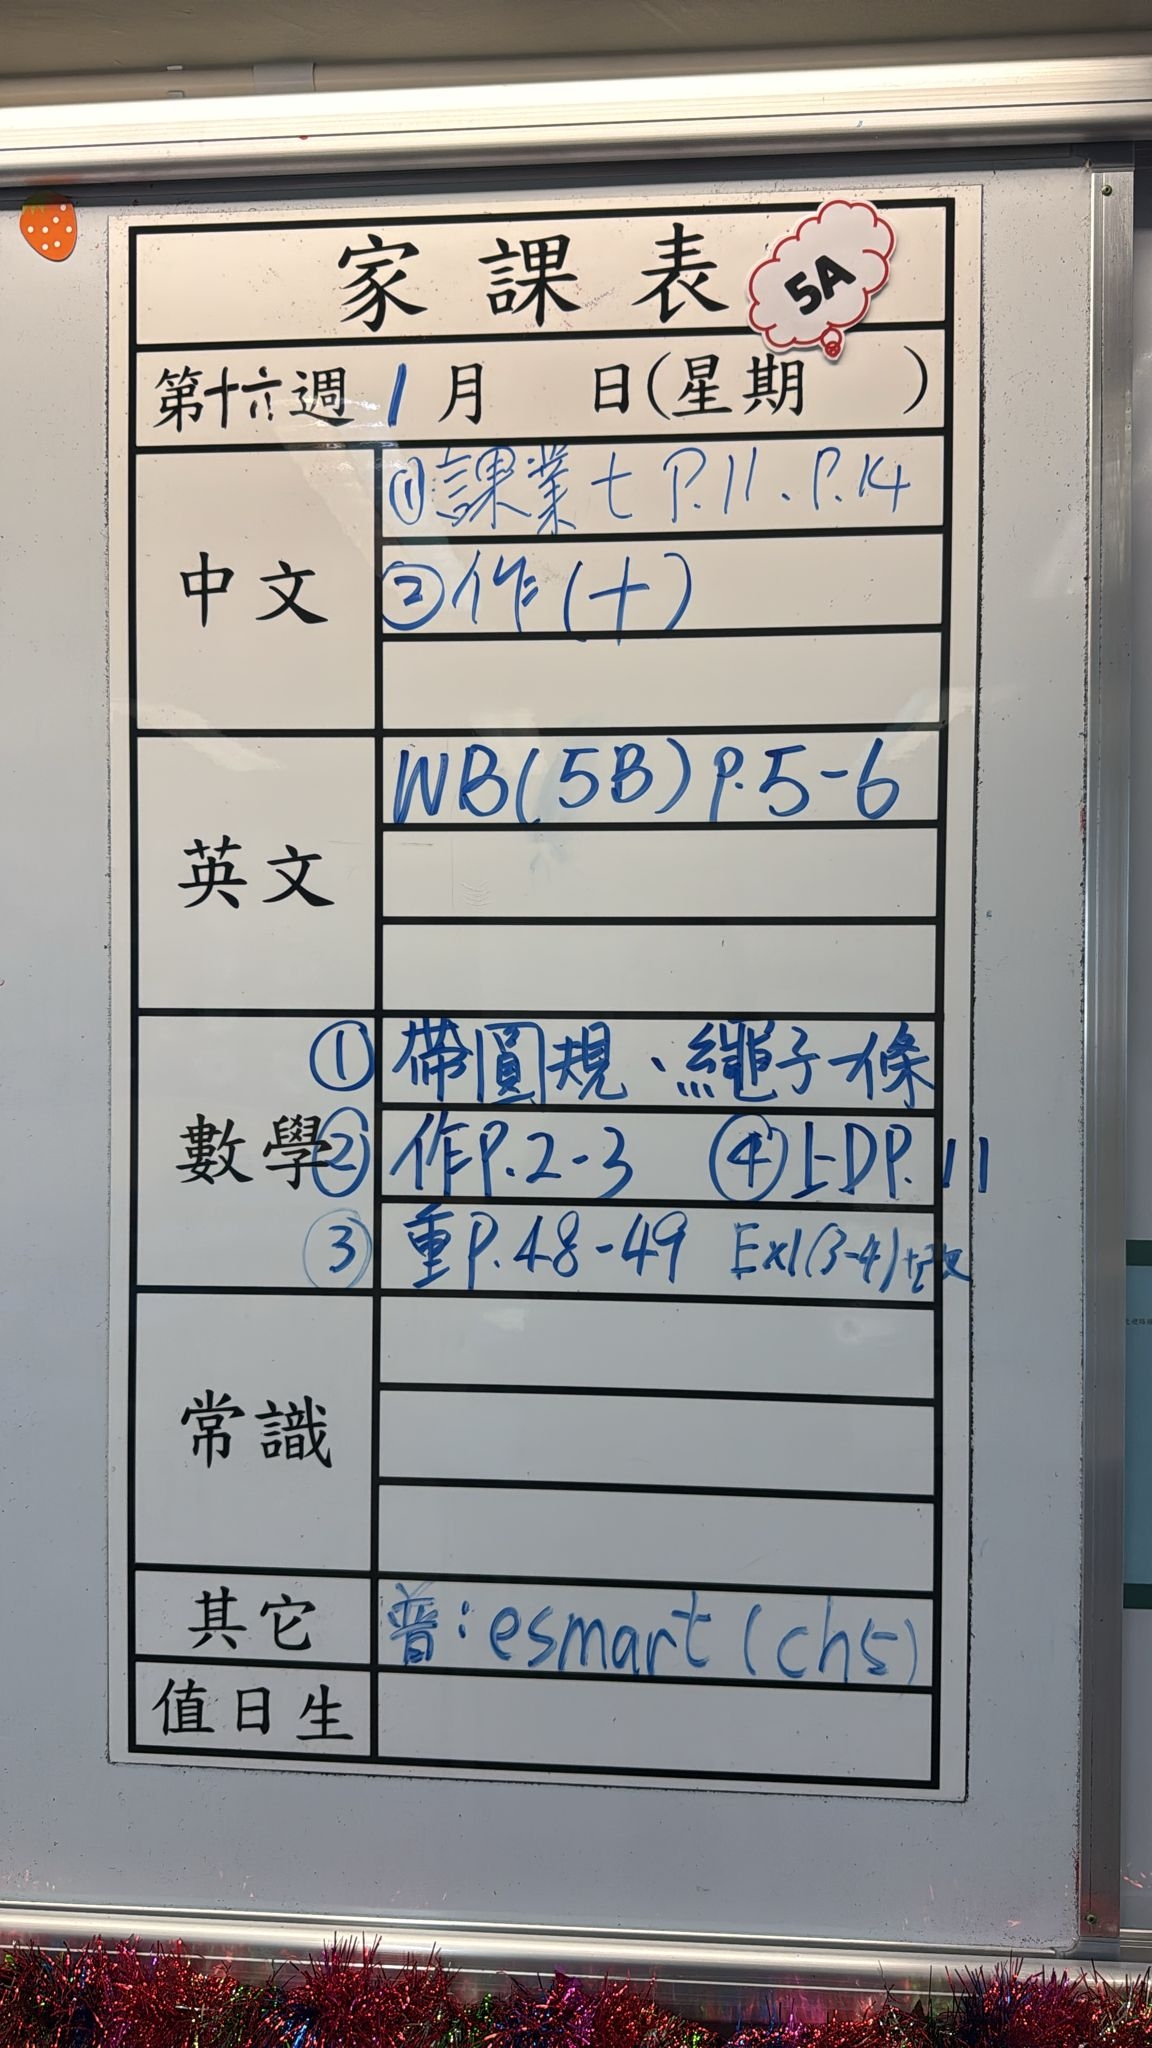 家課表 5A
第十六週 1月 日(星期 )
中文
①課業七 P.11、P.14
②作(十)
英文
WB(5B) P.5-6
數學
① 帶圓規、繩子一條
② 作P.2-3 ④ P.11
③ 重P.48-49 Ex1(3-4)+改
常識
其它
普:esmart(ch5)
值日生